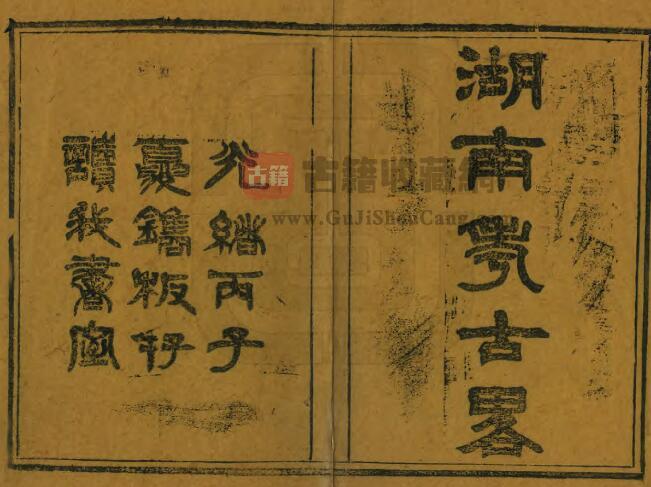 湖南考古畧
光緒丙子
夏鐫板存
讀我書室
古籍
古籍收藏網
www.GuJiShouCang.com